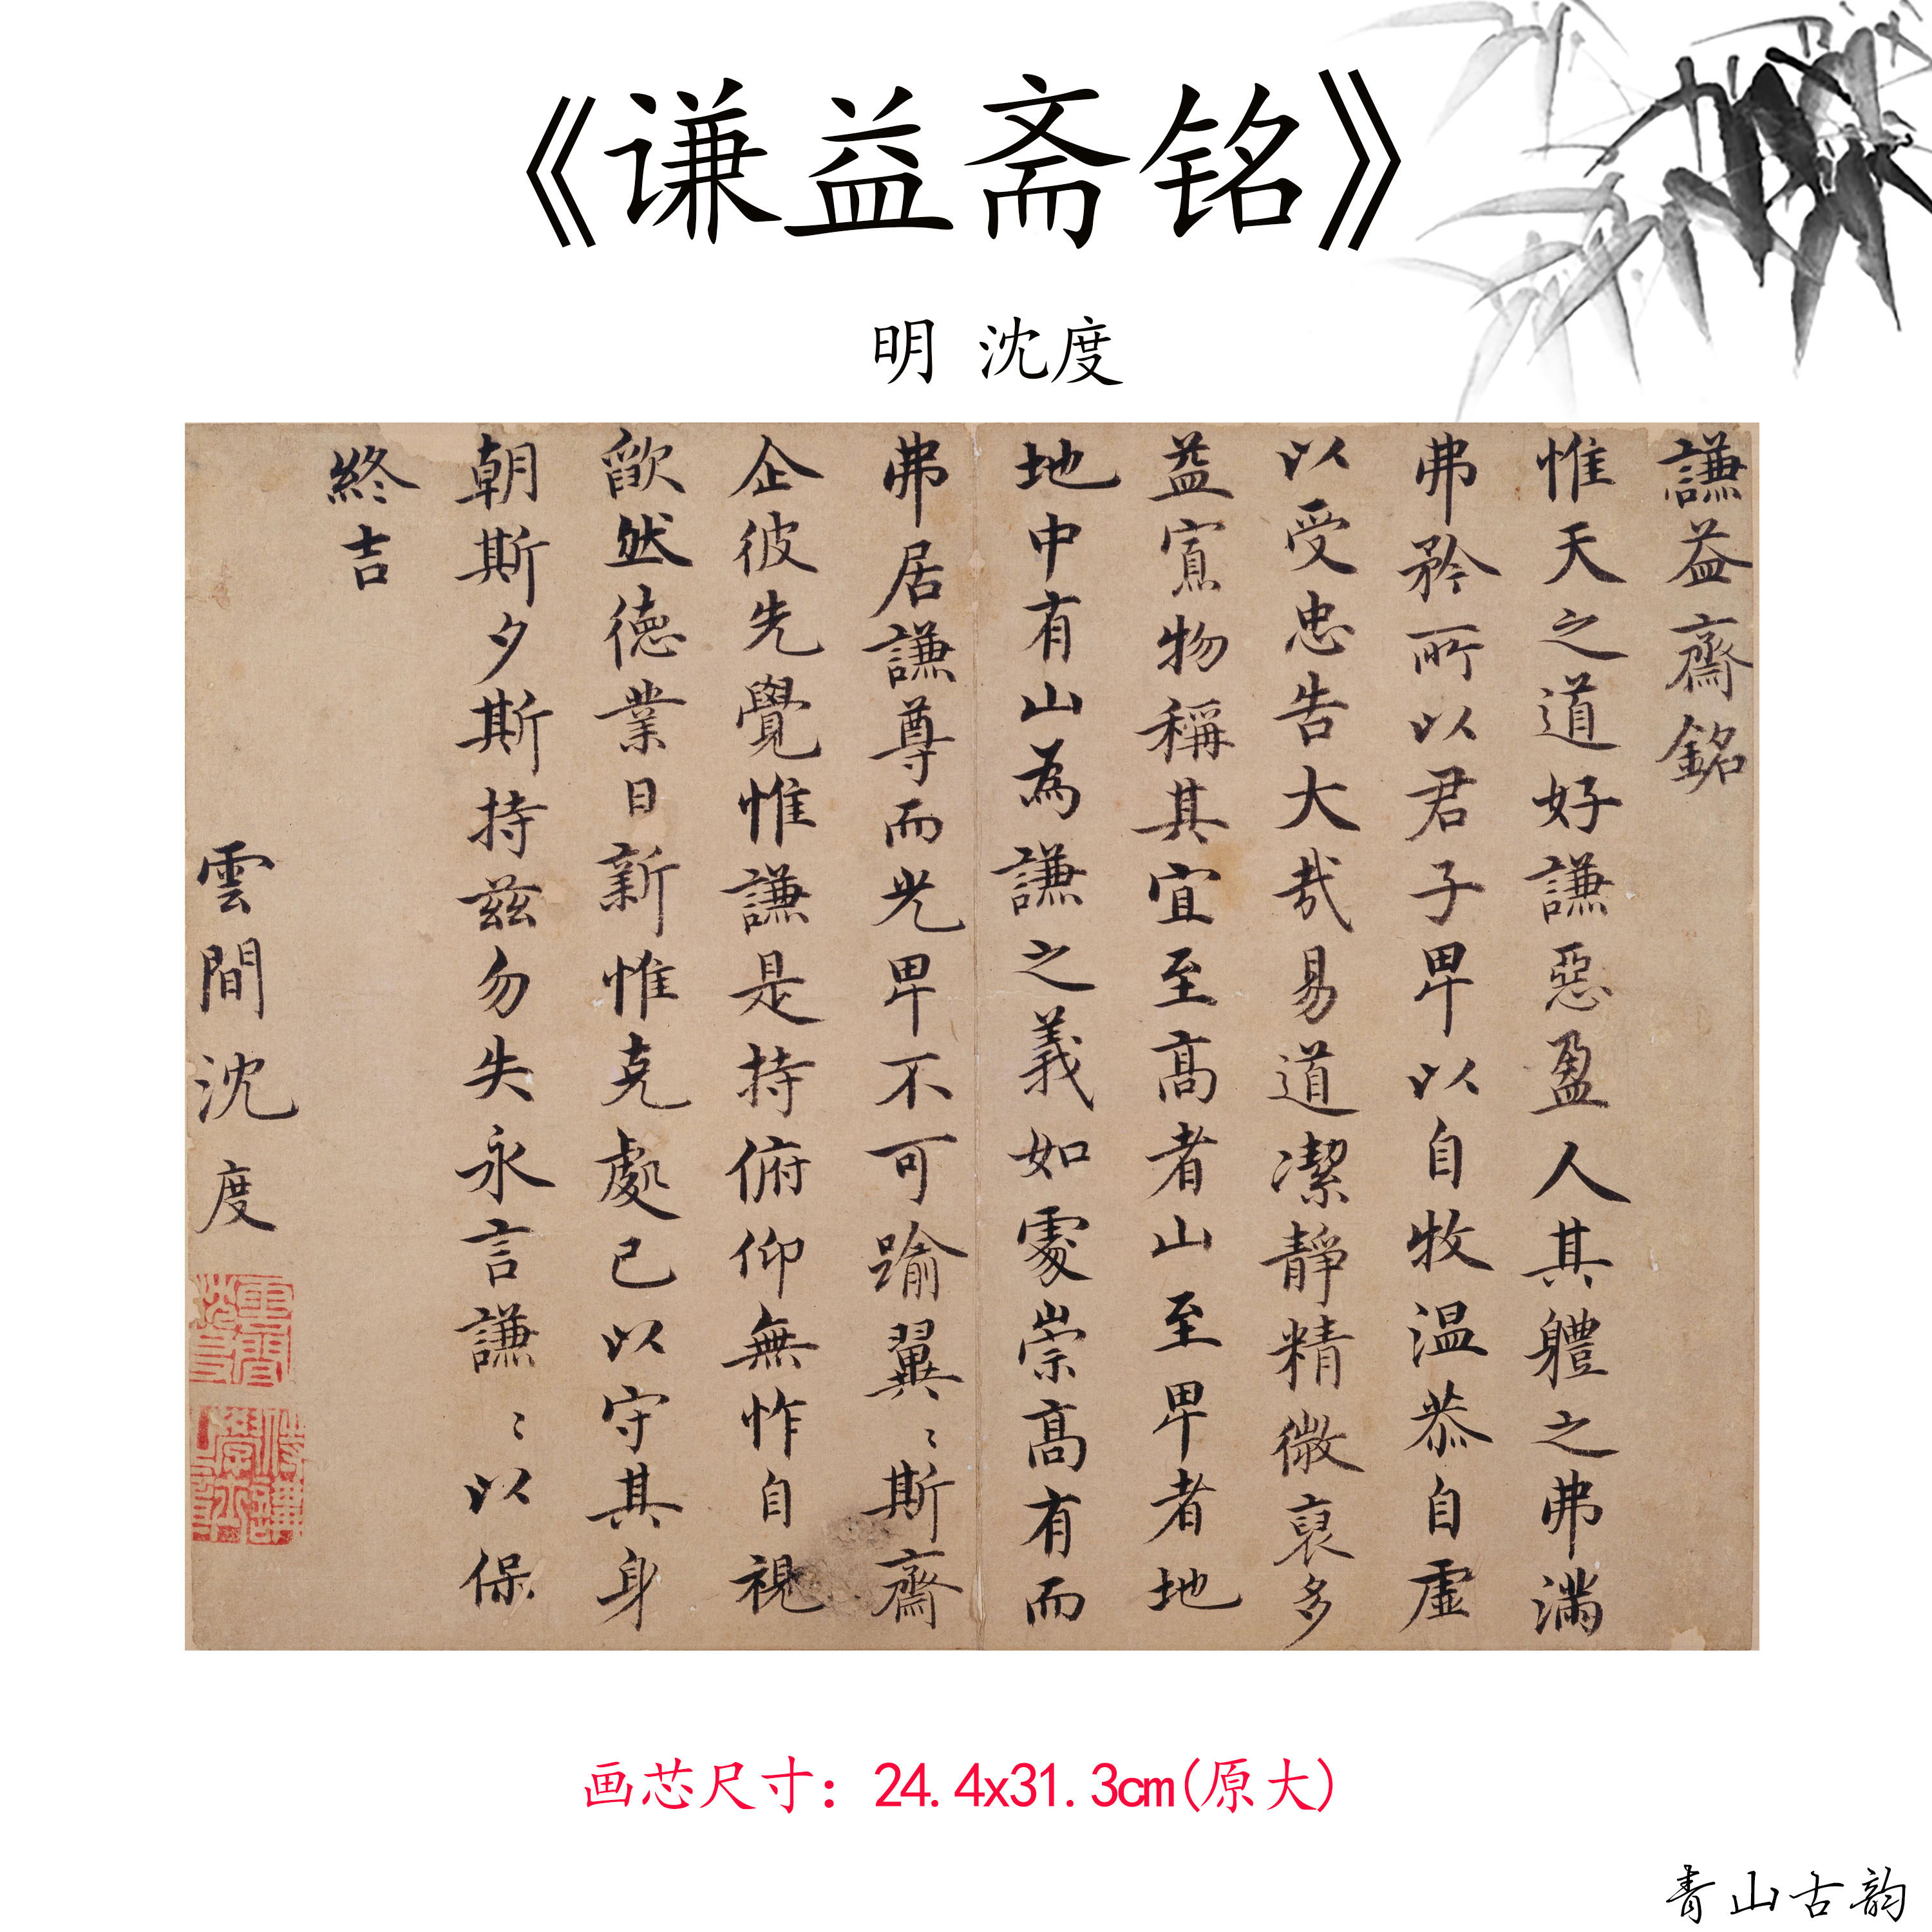 《谦益斋铭》
明 沈度
謙益齋銘
惟天之道好謙惡盈人其軆之弗滿
弗矜所以君子卑以自牧温恭自虛
以受忠告大哉易道潔靜精微裒多
益寡物稱其宜至髙者山至卑者地
地中有山為謙之義如處崇髙有而
弗居謙尊而光卑不可踰翼〻斯齋
企彼先覺惟謙是持俯仰無怍自視
歉然德業日新惟克處己以守其身
朝斯夕斯持兹勿失永言謙〻以保
終吉
雲間沈度
画芯尺寸：24.4x31.3cm(原大)
青山古韵